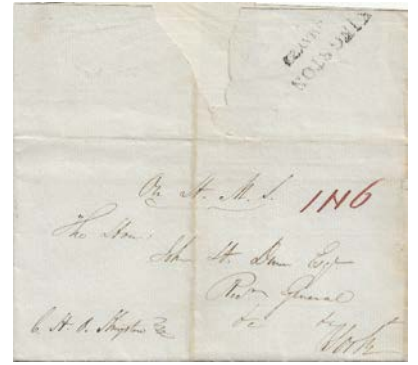 KINGSTON
On H. M. S. 1N6
The Hon:
John H. Dunn Esqr
Recr General
&c &c
York
C. H. O. Kingston